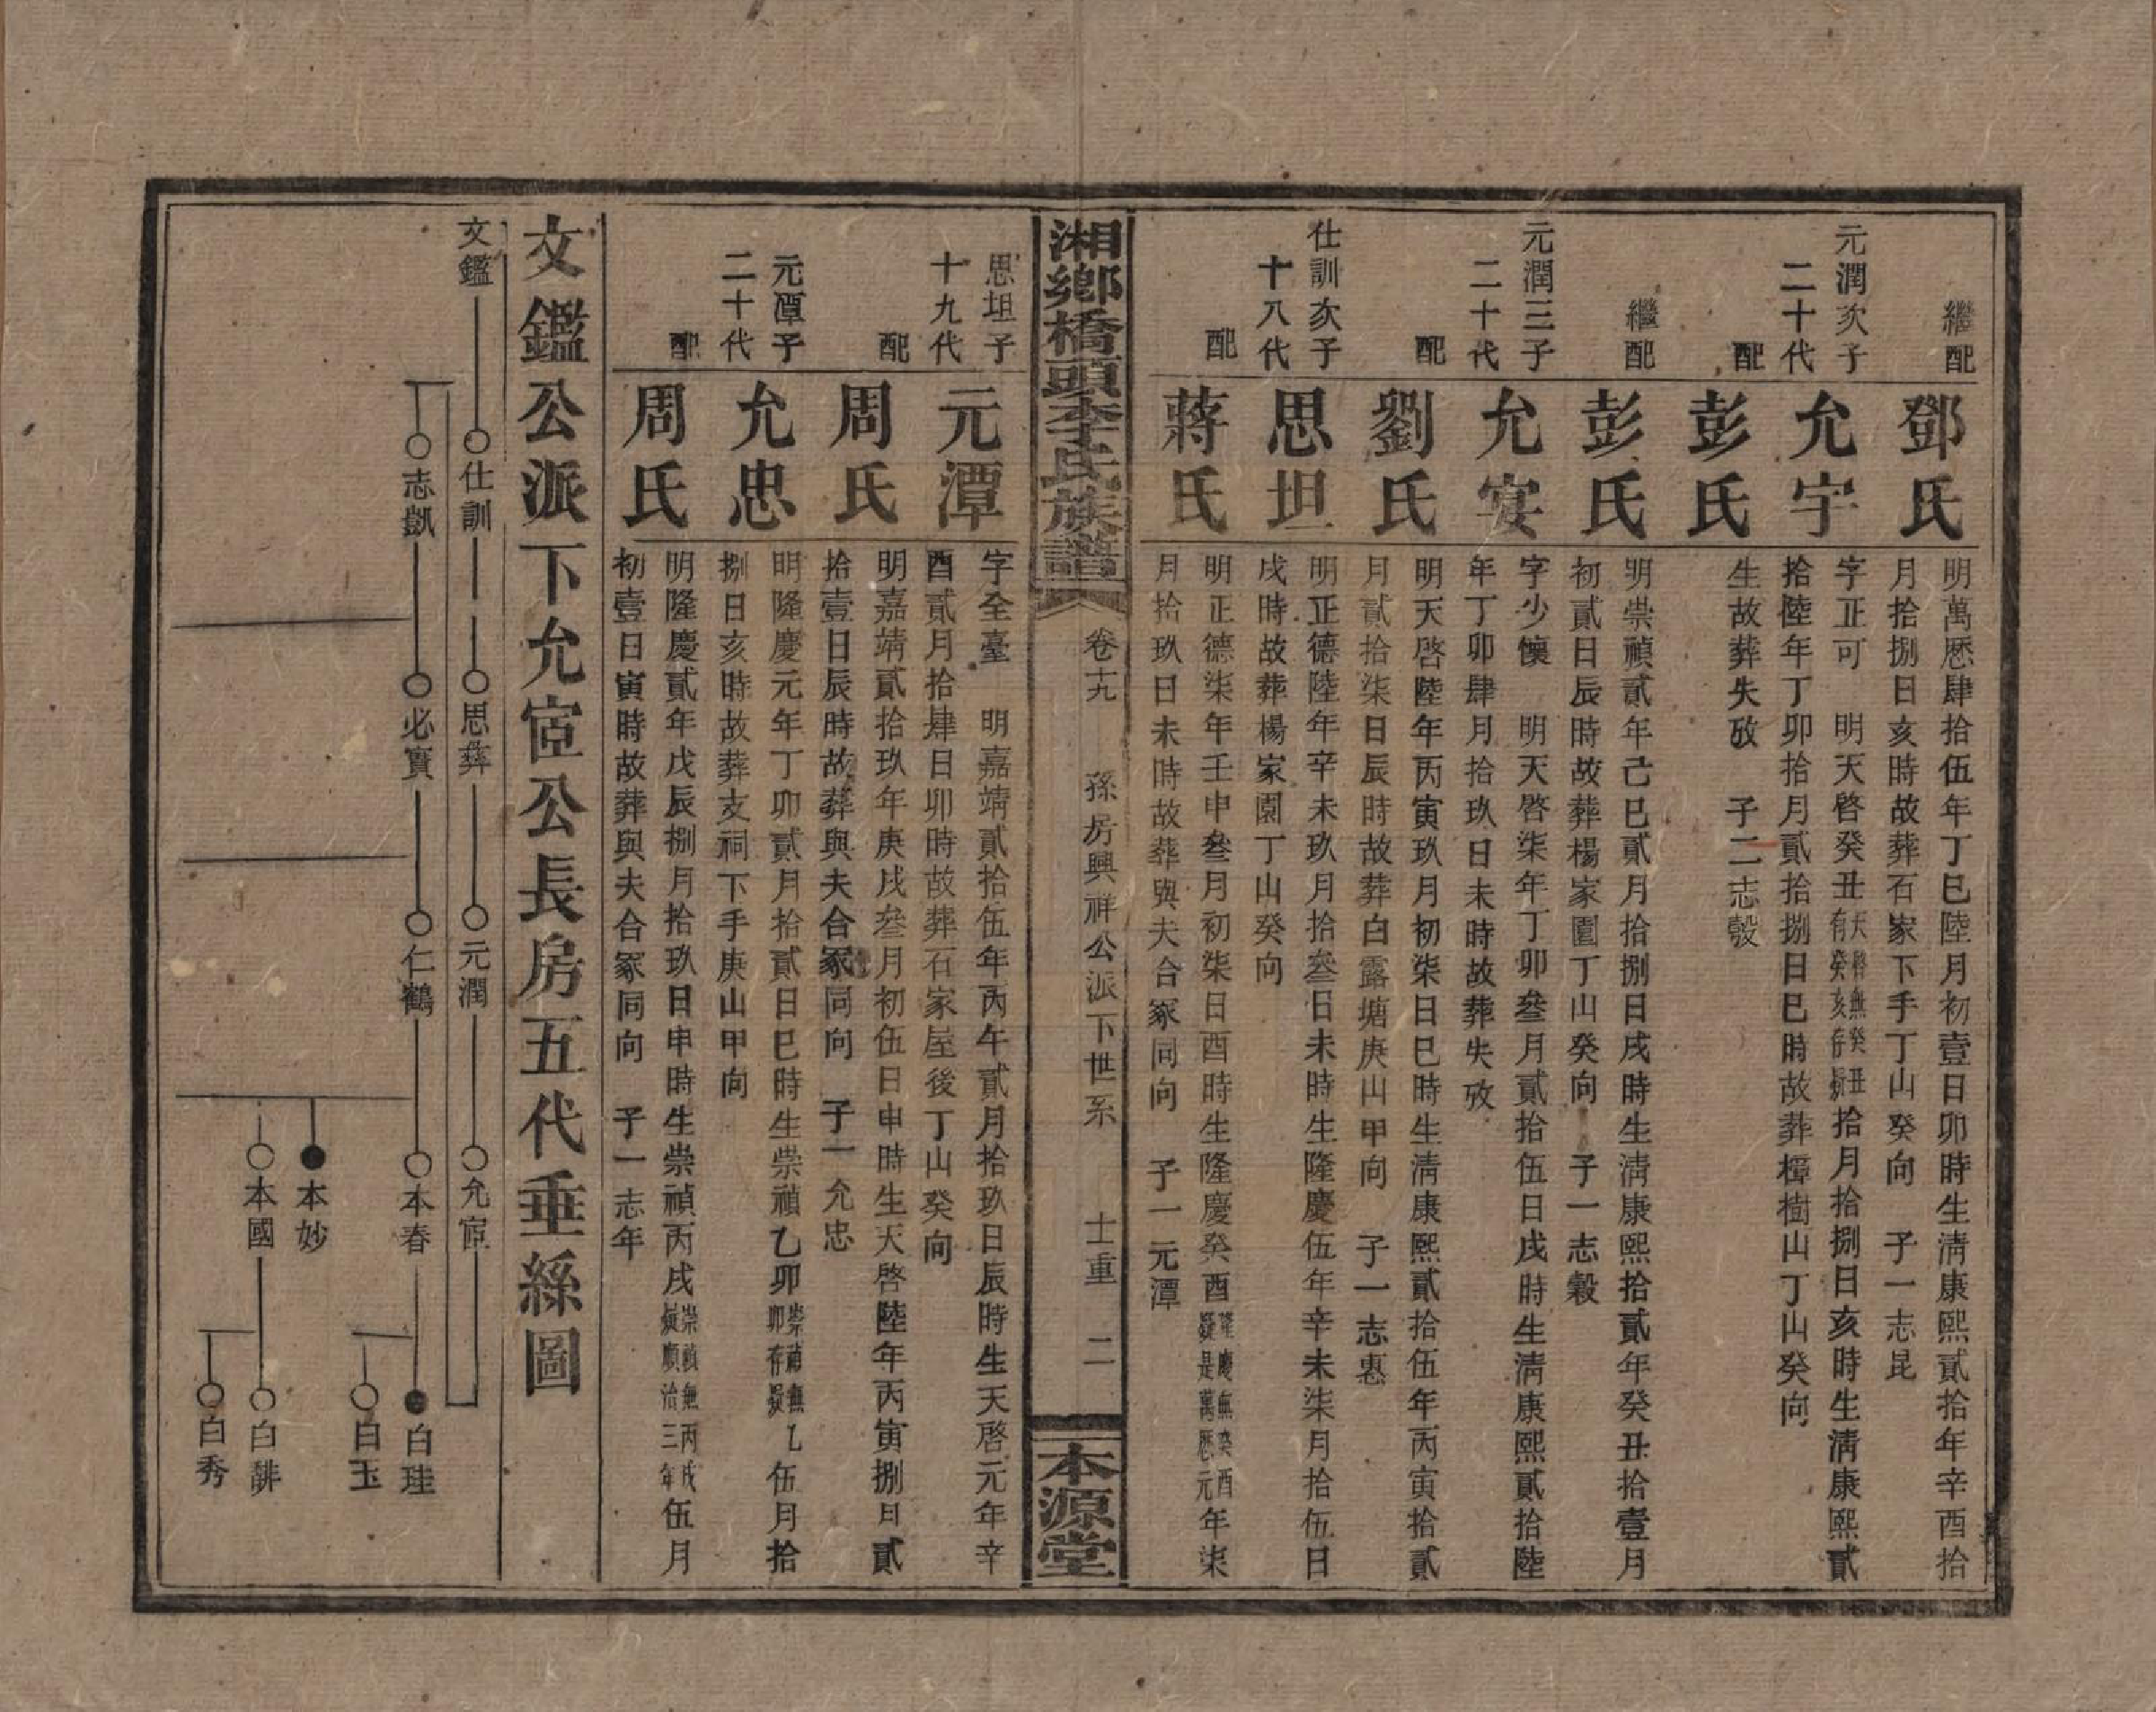 繼配
鄧氏
明萬厯肆拾伍年丁巳陸月初壹日卯時生淸康熙貳拾年辛酉拾
月拾捌日亥時故葬石家下手丁山癸向　子一志昆
元潤次子
二十代
允宇
字正可　明天啓癸丑天啓無癸丑有癸亥存疑拾月拾捌日亥時生淸康熙貳
拾陸年丁卯拾月貳拾捌日巳時故葬樟樹山丁山癸向
配
彭氏
生故葬失攷　子二志㲄
繼配
彭氏
明崇禎貳年己巳貳月拾捌日戌時生淸康熙拾貳年癸丑拾壹月
初貳日辰時故葬楊家園丁山癸向　子一志穀
元潤三子
二十代
允安
字少懷　明天啓柒年丁卯叄月貳拾伍日戌時生淸康熙貳拾陸
年丁卯肆月拾玖日未時故葬失攷
配
劉氏
明天啓陸年丙寅玖月初柒日巳時生淸康熙貳拾伍年丙寅拾貳
月貳拾柒日辰時故葬白露塘庚山甲向　子一志惠
仕訓次子
十八代
思坦
明正德陸年辛未玖月拾叄日未時生隆慶伍年辛未柒月拾伍日
戌時故葬楊家園丁山癸向
配
蔣氏
明正德柒年壬申叄月初柒日酉時生隆慶癸酉隆慶無癸酉疑是萬厯元年柒
月拾玖日未時故葬與夫合冢同向　子一元潭
湘鄉橋頭李氏族譜
卷十九
孫房興祥公派下世系
士重　二
本源堂
思坦子
十九代
元潭
字全臺　明嘉靖貳拾伍年丙午貳月拾玖日辰時生天啓元年辛
酉貳月拾肆日卯時故葬石家屋後丁山癸向
配
周氏
明嘉靖貳拾玖年庚戌叄月初伍日申時生天啓陸年丙寅捌月貳
拾壹日辰時故葬與夫合冢同向　子一允忠
元潭子
二十代
允忠
明隆慶元年丁卯貳月拾貳日巳時生崇禎乙卯崇禎無乙卯存疑伍月拾
捌日亥時故葬支祠下手庚山甲向
配
周氏
明隆慶貳年戊辰捌月拾玖日申時生崇禎丙戌崇禎無丙戌疑順治三年伍月
初壹日寅時故葬與夫合冢同向　子一志年
文鑑公派下允宦公長房五代垂絲圖
文鑑
仕訓
思彝
元潤
允宦
志凱
必寶
仁鶴
本春
白珪
白玉
本妙
本國
白誹
白秀